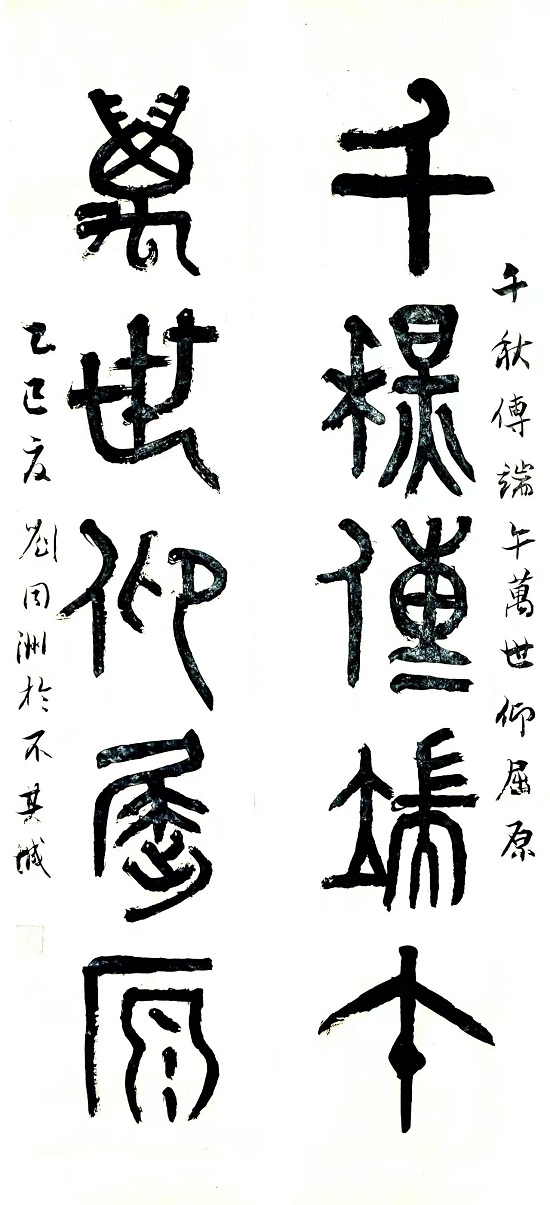 千秋傳端午萬世仰屈原
千秋傳端午
萬世仰屈原
乙巳夏劉同洲於不其城